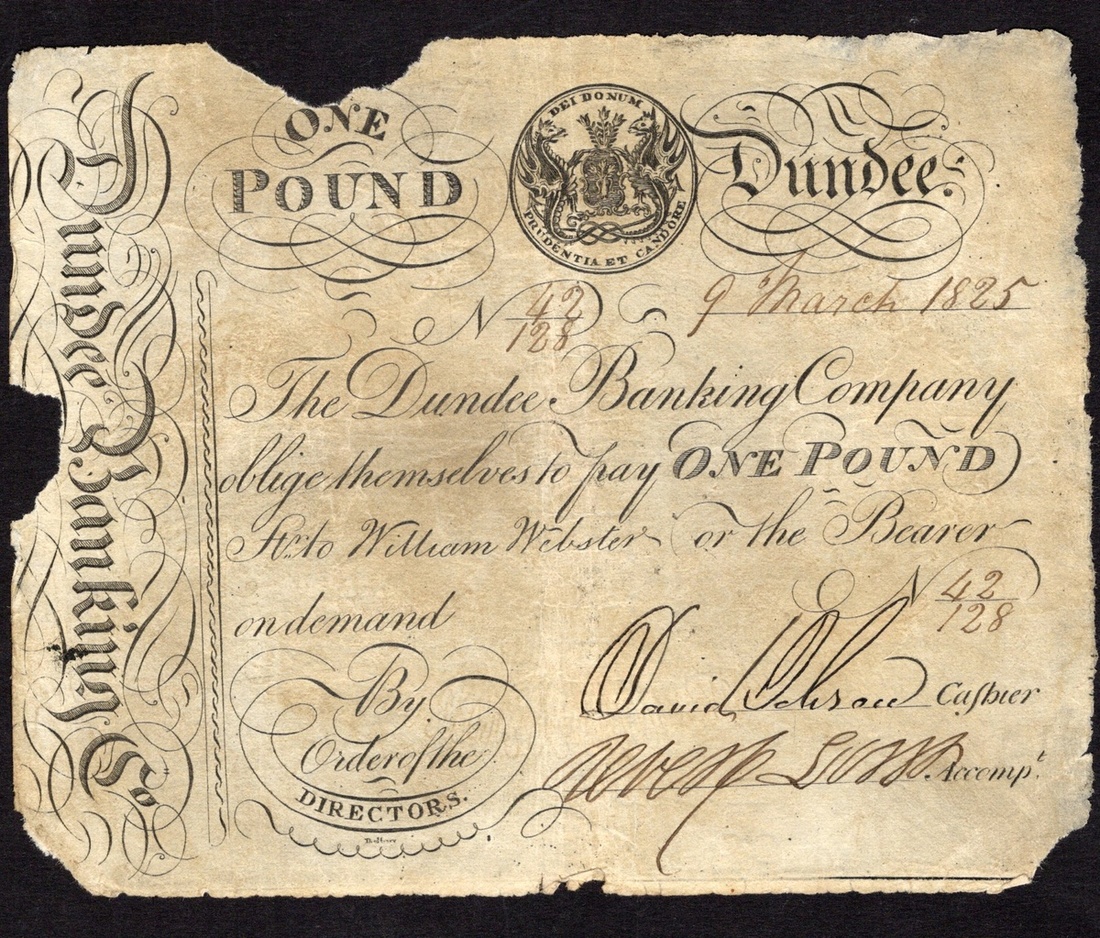 Dundee Banking Co
ONE
POUND
DEI DONUM
PRUDENTIA ET CANDORE
Dundee.
No 42/128
9 March 1825
The Dundee Banking Company
oblige themselves to pay ONE POUND
Str. to William Webster or the Bearer
on demand
No 42/128
By
Order of the
DIRECTORS.
David Cashier
Accompt.